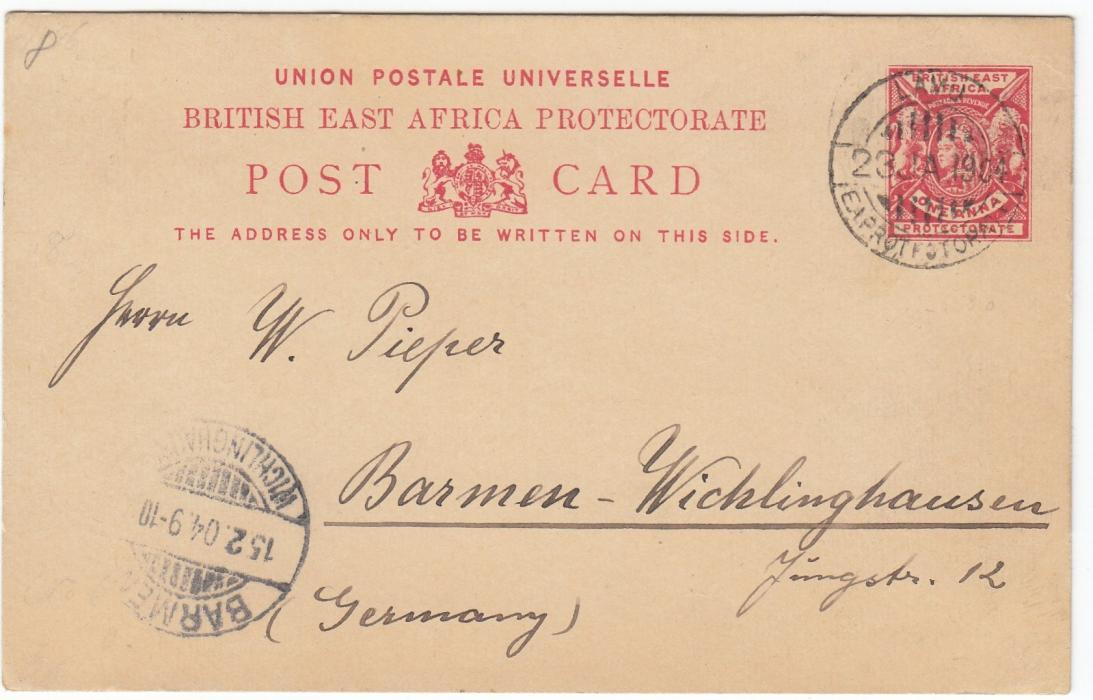 8
UNION POSTALE UNIVERSELLE
BRITISH EAST AFRICA PROTECTORATE
POST CARD
THE ADDRESS ONLY TO BE WRITTEN ON THIS SIDE.
BRITISH EAST
AFRICA
POSTAGE & REVENUE
ONE ANNA
PROTECTORATE
LAMU
23 JA 1904
Herrn W. Pieper
Barmen - Wichlinghausen
Jüngstr. 12
(Germany)
WICHLINGHA
15.2.04.9-10
BARMEN